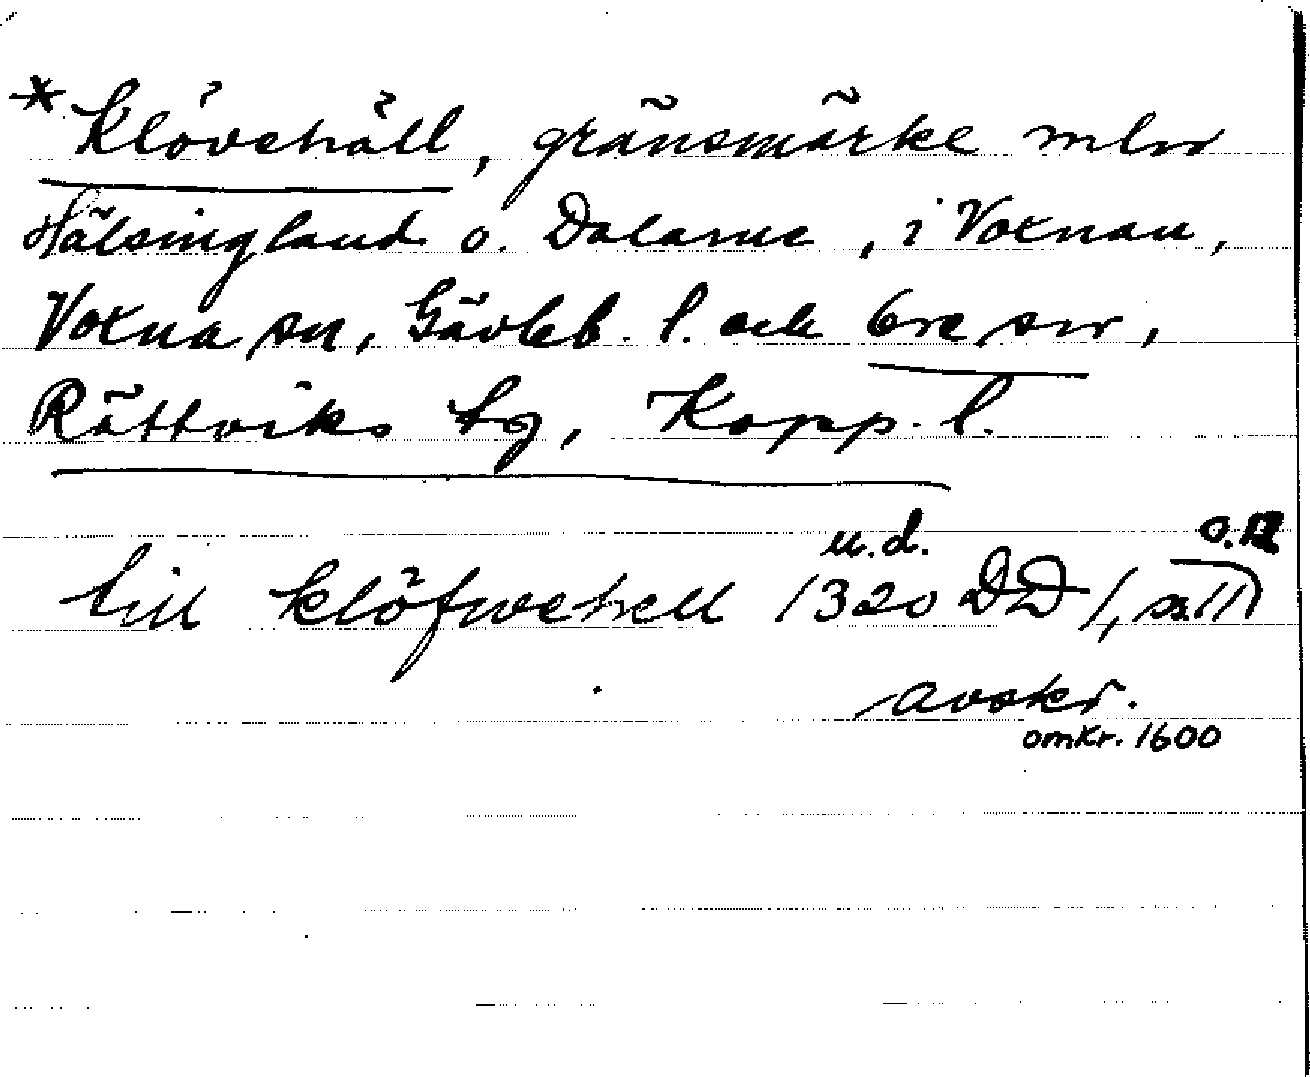 * Klövehäll, gränsmärke mlm
Hälsingland o. Dalarne, i Voxnan,
Voxna sn, Gävleb. l. och Ore sn,
Rättviks tg, Kopp. l.
u.d. o.
till klöfwehell 1320 DD 1,
avskr.
omkr. 1600